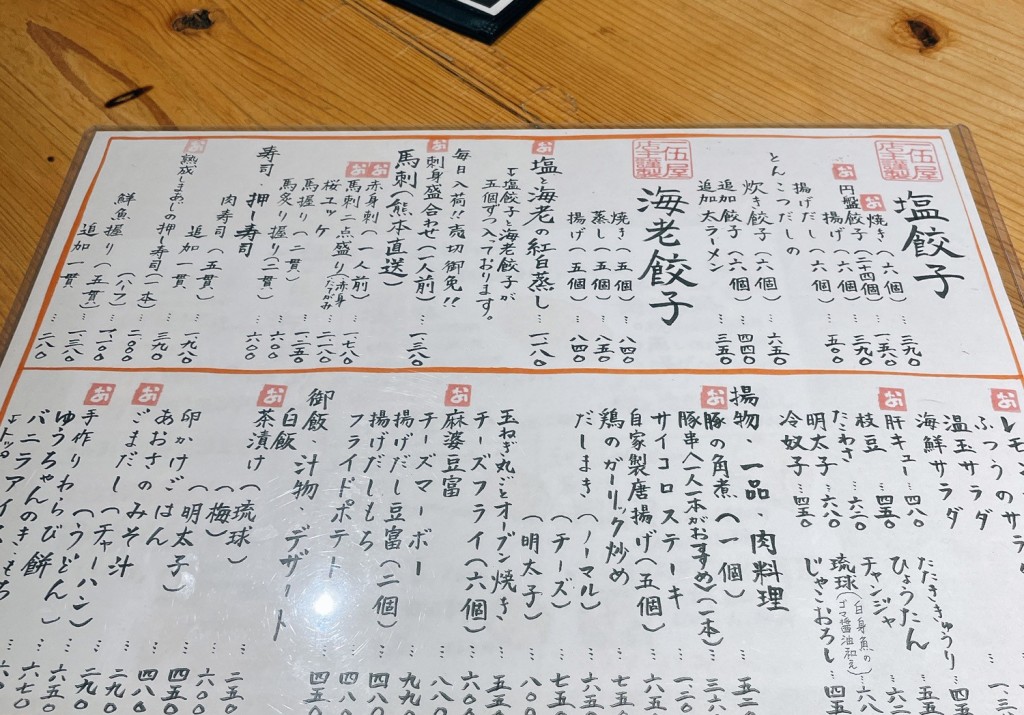 塩餃子
焼き(六個)…三九〇
(二十四個)…一、五六〇
円盤餃子(六個)…三九〇
揚げ(六個)…五〇〇
揚げだしの
とんこつだしの
炊き餃子…六五〇
追加餃子(六個)…四四〇
追加太ラーメン…三五〇
海老餃子
焼き(五個)…八四〇
蒸し(五個)…八五〇
揚げ(五個)…八四〇
お
塩と海老の紅白蒸し…一、一八〇
↳塩餃子と海老餃子が
五個ずつ入っております。
毎日入荷!!売切御免!!
お
刺身盛合わせ(一人前)…一、三八〇
馬刺(熊本直送)
お
赤身刺(一人前)…一、一七八〇
お
馬刺二点盛り(赤身たてがみ)…二、一八〇
桜ユッケ…一、二五〇
馬握り(二貫)…六〇〇
馬炙り握り(二貫)…六〇〇
寿司・押し寿司
肉寿司(五貫)…一、九八〇
追加一貫…三九〇
お
熟成しまあじの押し寿司(一本)…二、〇〇〇
(ハーフ)…一、一〇〇
鮮魚握り(五貫)…一、三八〇
追加一貫…二八〇
お
ふつうのサラダ
温玉サラダ
海鮮サラダ
お
肝キュー…四八〇
枝豆…四五〇
たこわさ…六二〇
明太子…六八〇
冷奴子…四五〇
たたききゅうり
ひょうたん
チャンジャ
琉球(白身魚のゴマ醤油和え)
じゃこおろし
揚物・一品・肉料理
お
豚の角煮(一個)
豚串八一八一本がおすすめ(一本)
サイコロステーキ
自家製唐揚げ(五個)
鶏のガーリック炒め
だしまき(ノーマル)
(チーズ)
(明太子)
玉ねぎ丸ごとオーブン焼き
チーズフライ(六個)
お
麻婆豆富
チーズマーボー
揚げだし豆富(二個)
揚げだしもち
フライドポテト
御飯・汁物・デザート
白飯
お
茶漬け(琉球)
(梅)
(明太子)
卵かけごはん
あおさのみそ汁
お
ごまだし(チャーハン)
(うどん)
お
手作りわらび餅
ゆうちゃんのき
バニラアイス